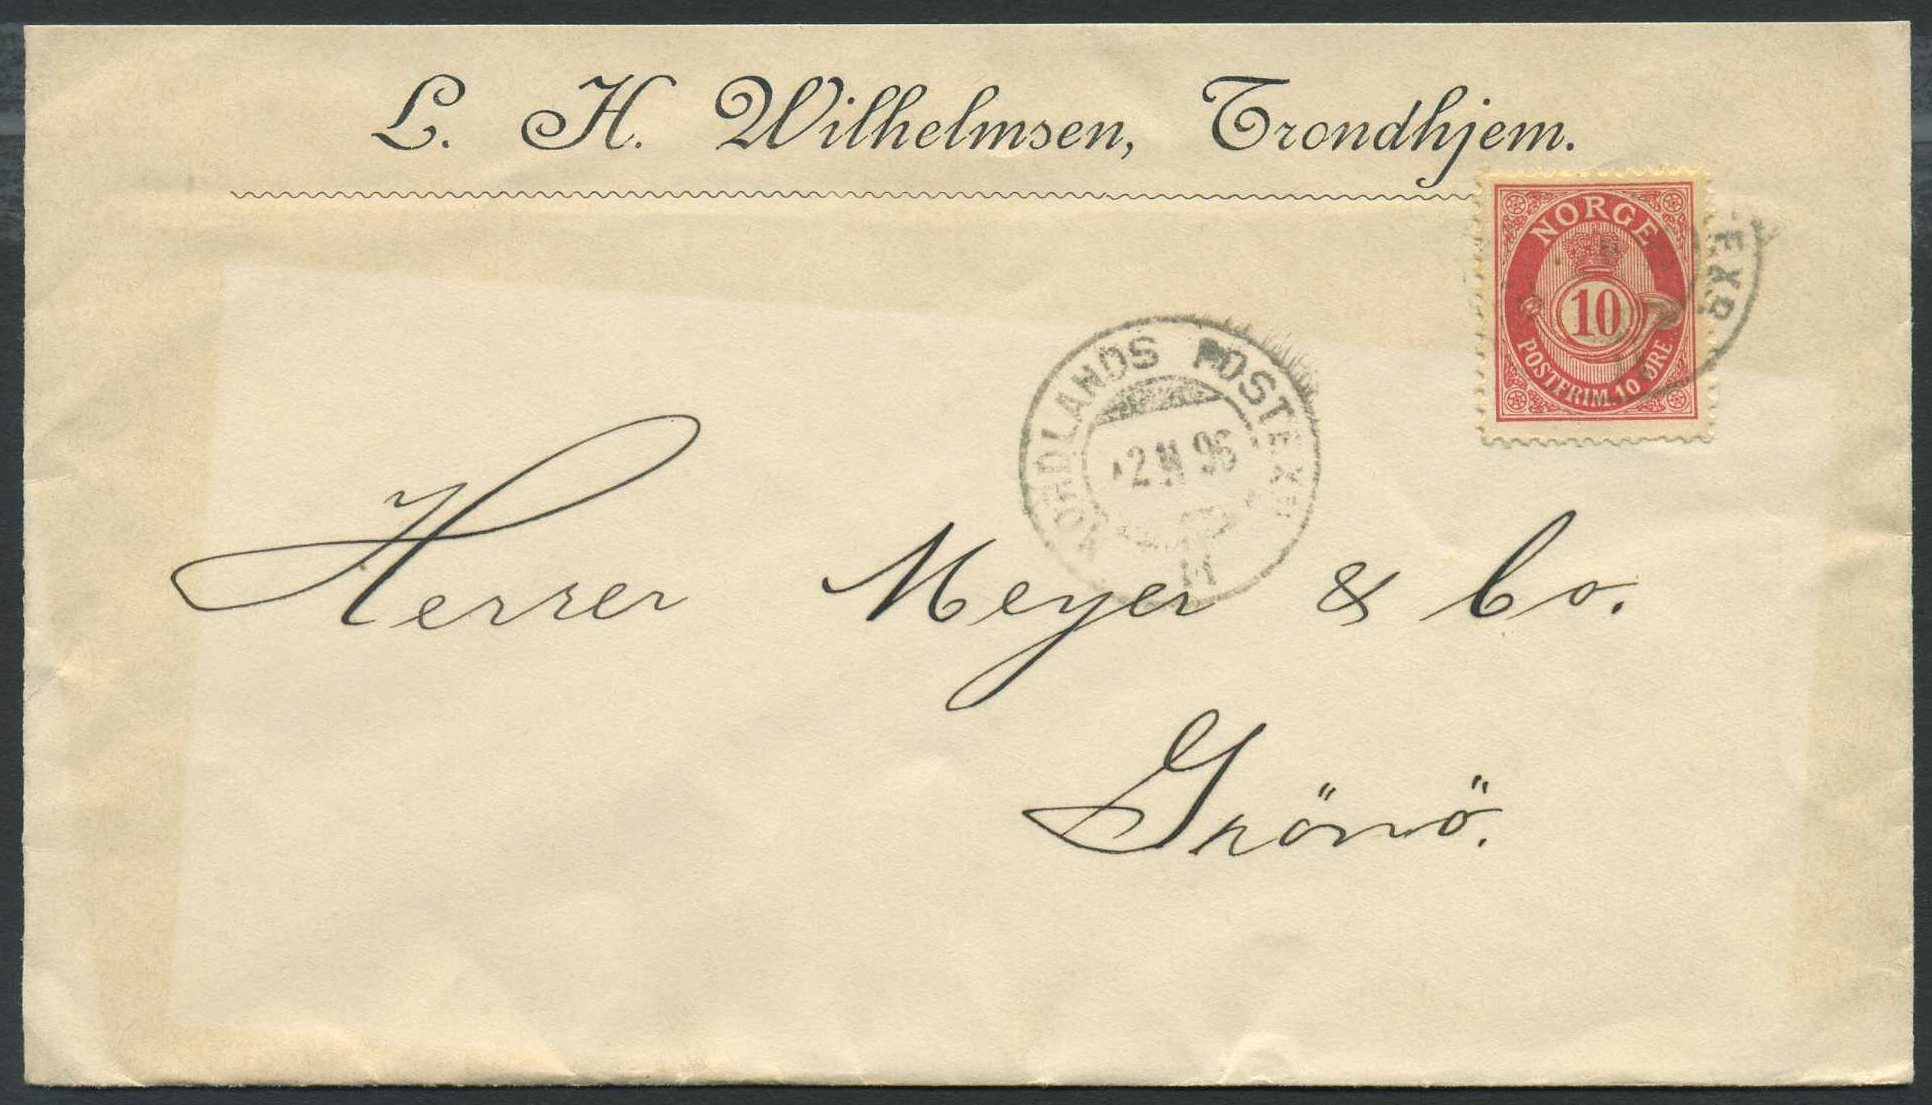 L. H. Wilhelmsen, Trondhjem.
NORGE
10
POSTFRIM. 10 ØRE
EXP.
NORDLANDS POSTEXP.
Herrer Meyer & Co.
Grönö.